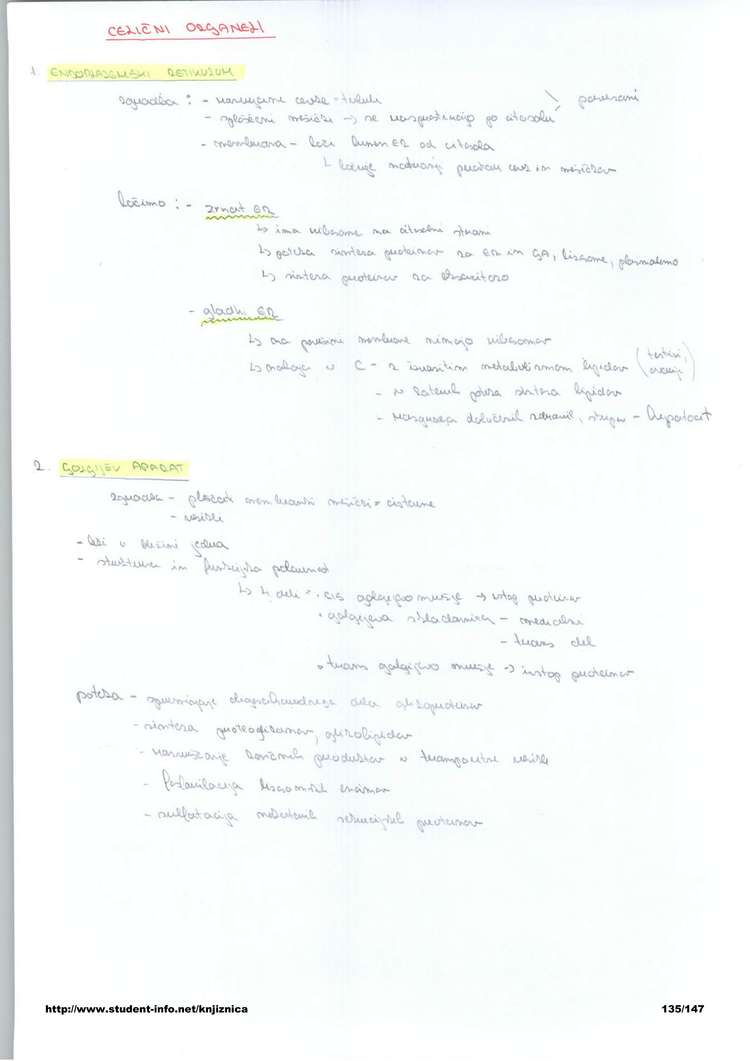 CELIČNI ORGANELI
1. ENDOPLAZEMSKI RETIKULUM
zgradba : - razvejane cevke = tubuli \ povezani
- sploščeni mešički → se razprostirajo po citosolu
- membrana - loči lumen ER od citosola
↳ loči notranji prostor cevk in mešičkov
Ločimo : - zrnat ER
↳ ima ribosome na citosolni strani
↳ poteka sinteza proteinov za ER in GA, lizosome, plazmalemo
↳ sinteza proteinov za eksocitozo
- gladki ER
↳ na površini membrane nimajo ribosomov
↳ nahaja v C - z izrazitim metabolizmom lipidov (testisi, ovariji)
- v katerih poteka sinteza lipidov
- razgradnja določenih zdravil, strupov - hepatocit
2. GOLGIJEV APARAT
zgradba - ploščati membranski mešički = cisterne
- vezikli
- leži v bližini jedra
- strukturna in funkcijska polarnost
↳ 4 deli = • cis golgijevo mrežje → vstop proteinov
• golgijeva skladovnica - medialni
- trans del
• trans golgijevo mrežje → izstop proteinov
poteka - spreminjanje oligosaharidnega dela glikoproteinov
- sinteza proteoglikanov, glikolipidov
- razvrščanje končnih produktov v transportne vezikle
- fosforilacija lizosomskih encimov
- sulfatacija nekaterih sekrecijskih proteinov
http://www.student-info.net/knjiznica
135/147